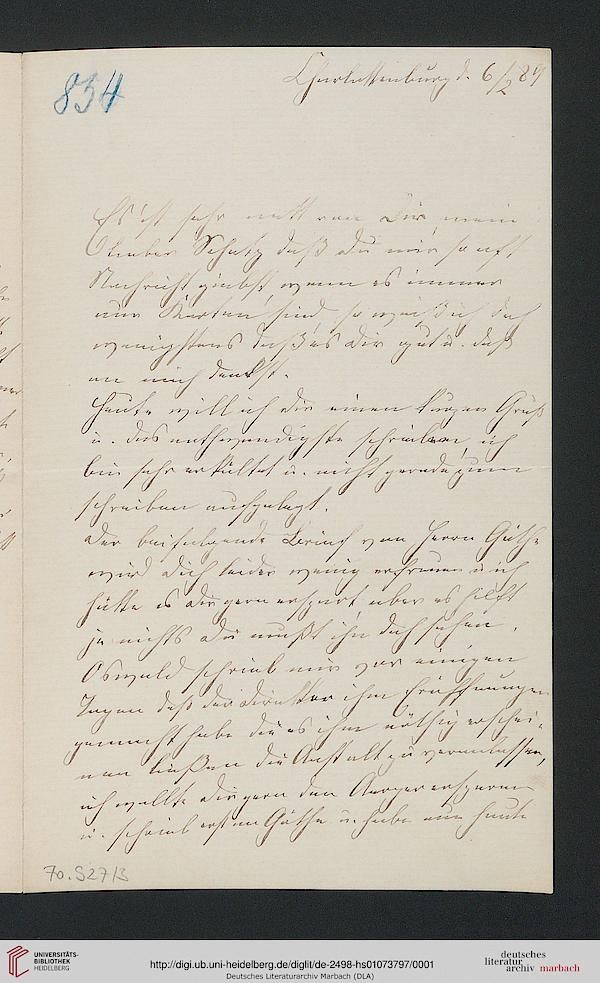 834
Charlottenburg d. 6/2 84
Es ist sehr nett von Dir, mein
lieber Schatz daß du mir so oft
Nachricht giebst wenn es immer
nur Karten sind, so weiß ich doch
wenigstens daß es Dir gut u. daß
an mich denkst.
Heute will ich dir einen kurzen Gruß
u. das nothwendigste schreiben, ich
bin sehr erkältet u. nicht gerade zum
schreiben aufgelegt.
Der beifolgende Brief von Herrn Güth
wird Dich leider wenig erfreuen u ich
hätte es dir gern erspart, aber es hilft
ja nichts du mußt ihn doch sehen.
Oswald schrieb mir vor einigen
Tagen daß der Direktor ihm Eröffnungen
gemacht habe die es ihm nöthig erschei-
nen ließen die Anstalt zu verlassen,
ich wollte dir gern den Aerger ersparen
u. schrieb erst an Güth u. habe nun heute
70.527/3
UNIVERSITÄTS-
BIBLIOTHEK
HEIDELBERG
http://digi.ub.uni-heidelberg.de/diglit/de-2498-hs01073797/0001
Deutsches Literaturarchiv Marbach (DLA)
deutsches
literatur
archiv marbach